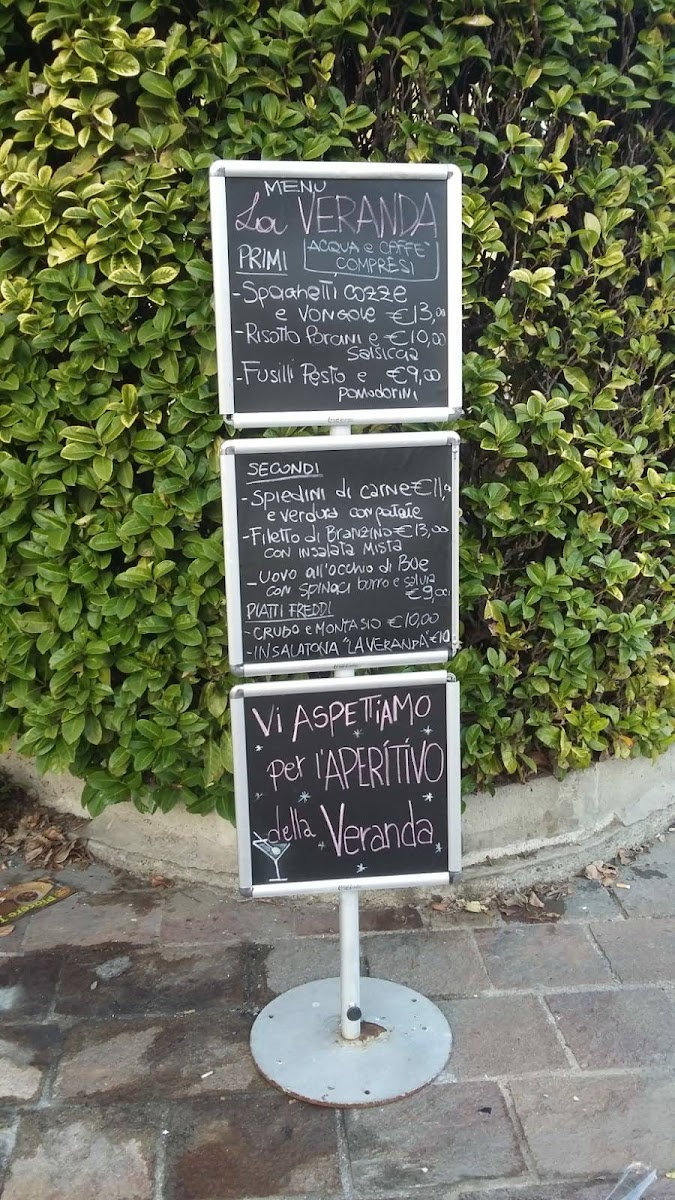 MENU
La VERANDA
PRIMI
ACQUA e CAFFE'
COMPRESI
-Spaghetti cozze
e VONGOLE €13,00
-Risotto Porcini e €10,00
Salsiccia
-Fusilli Pesto e €9,00
POMODORINI
SECONDI
-Spiedini di carne €11,0
e verdura con patate
-Filetto di Branzino €13,00
con insalata mista
-Uovo all'occhio di Bue
con spinaci burro e salvia
€9,00
PIATTI FREDDI
-CRUDO e MONTASIO €10,00
-INSALATONA "LA VERANDA" €10
Vi ASPETTIAMO
per l'APERITIVO
della Veranda